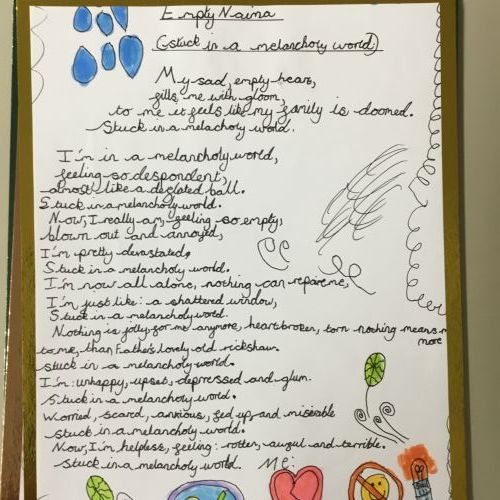 Empty Naina
(stuck in a melancholy world)
My sad, empty hear,
fills me with gloom,
to me it feels like my family is doomed.
Stuck in a melacholy world.
I'm in a melancholy world,
feeling so despondent,
almost like a deflated ball.
Stuck in a melancholy world.
Now, I really am, feeling so empty,
blown out and annoyed,
I'm pretty devastated,
Stuck in a melancholy world.
I'm now all alone, nothing can repair me,
I'm just like: a shattered window,
Stuck in a melancholy world.
Nothing is jolly for me anymore, heartbroken, torn nothing means
more
to me, than Father's lovely old rickshaw.
stuck in a melancholy world.
I'm: unhappy, upset, depressed and glum.
Stuck in a melancholy world.
Worried, scard, anxious, fed up and misérable
stuck in a melancholy world.
Now, I'm helpless, feeling: rotten, awful and terrible.
stuck in a melancholy world. Me: